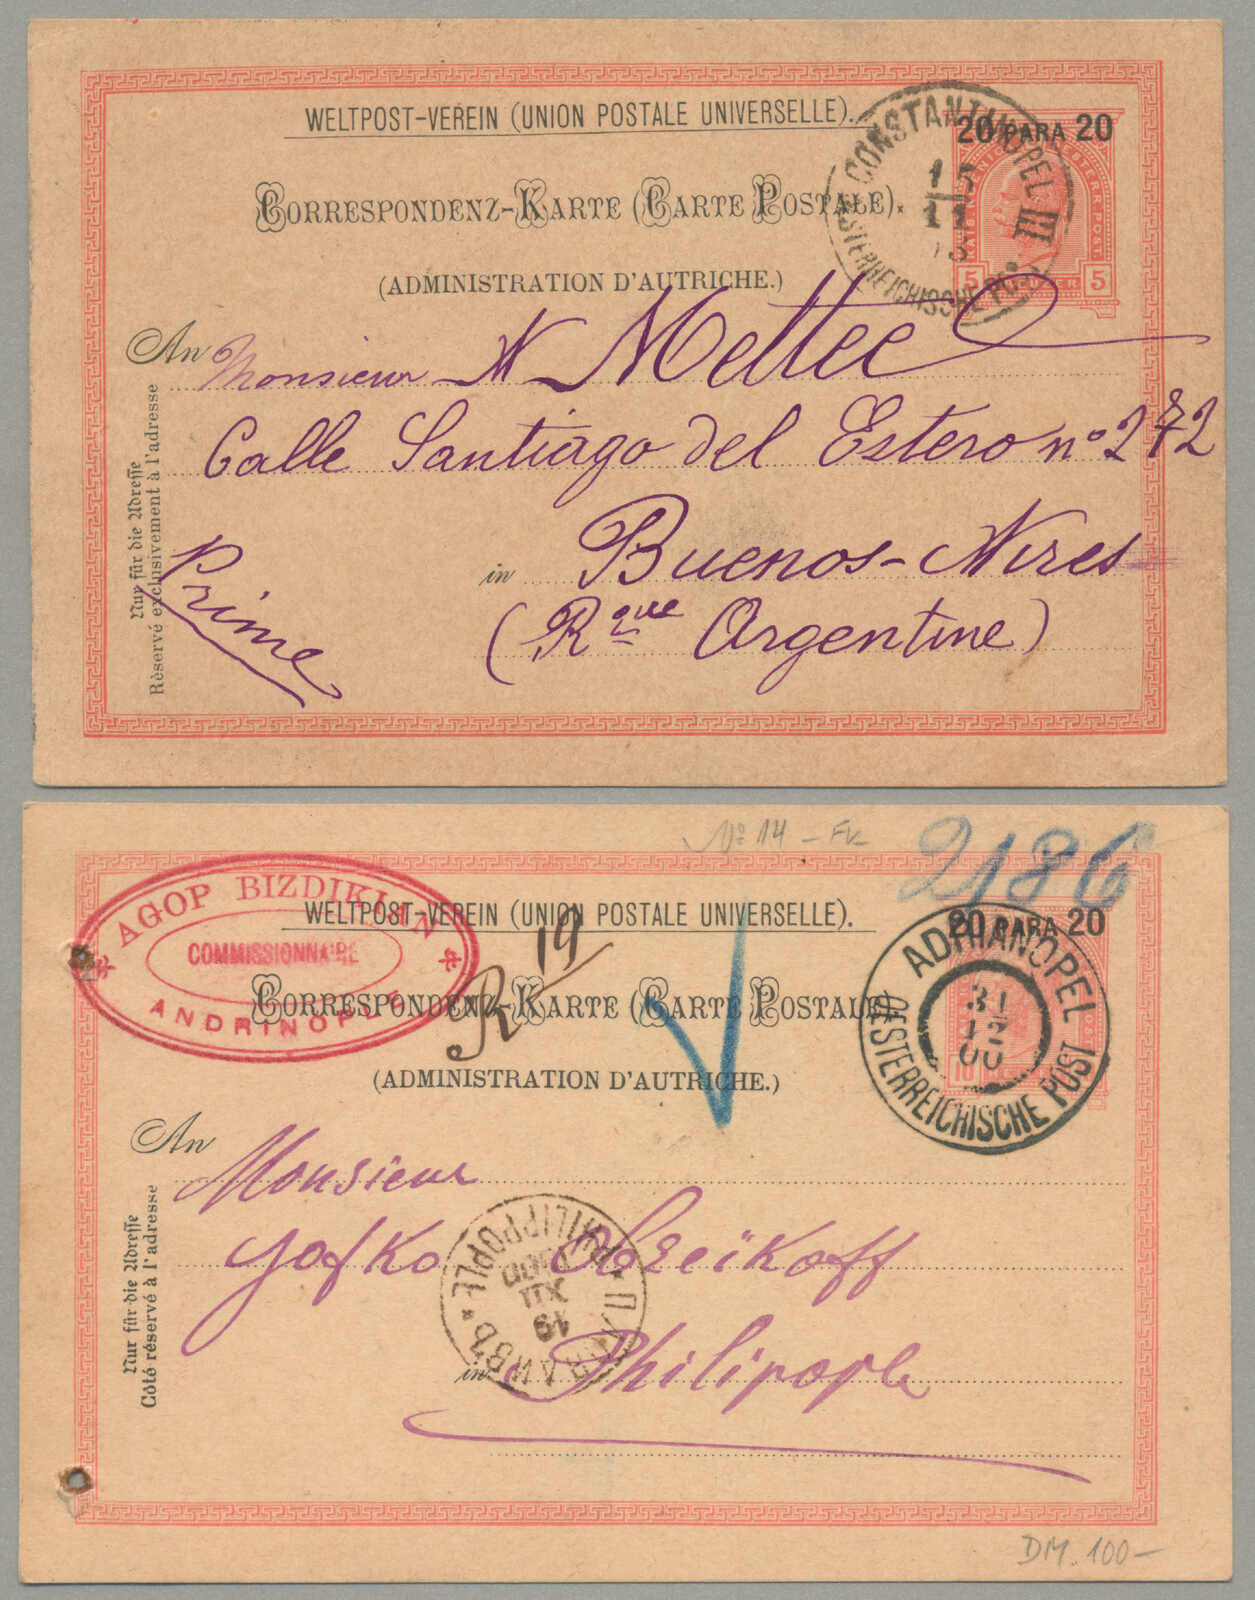 WELTPOST-VEREIN (UNION POSTALE UNIVERSELLE).
20 PARA 20
CONSTANTINOPEL III
15
11
OESTERREICHISCHE POST
5 5
CORRESPONDENZ-KARTE (CARTE POSTALE).
(ADMINISTRATION D'AUTRICHE.)
An Monsieur N Mettee
Calle Santiago del Estero nº 272
in Buenos-Aires
(Rque Argentine)
Prime
Nur für die Adresse
Réservé exclusivement à l'adresse
Nº 14 - Fk-
2186
AGOP BIZDIKIAN
COMMISSIONNAIRE
ANDRINOPLE
WELTPOST-VEREIN (UNION POSTALE UNIVERSELLE).
20 PARA 20
R 19
ADRIANOPEL
31
12
00
OESTERREICHISCHE POST
10
CORRESPONDENZ-KARTE (CARTE POSTALE)
(ADMINISTRATION D'AUTRICHE.)
An Monsieur
PHILIPPOPLE
19
XII
ПЛОВДИВЪ
in Philipople
Nur für die Adresse
Côté réservé à l'adresse
DM. 100-